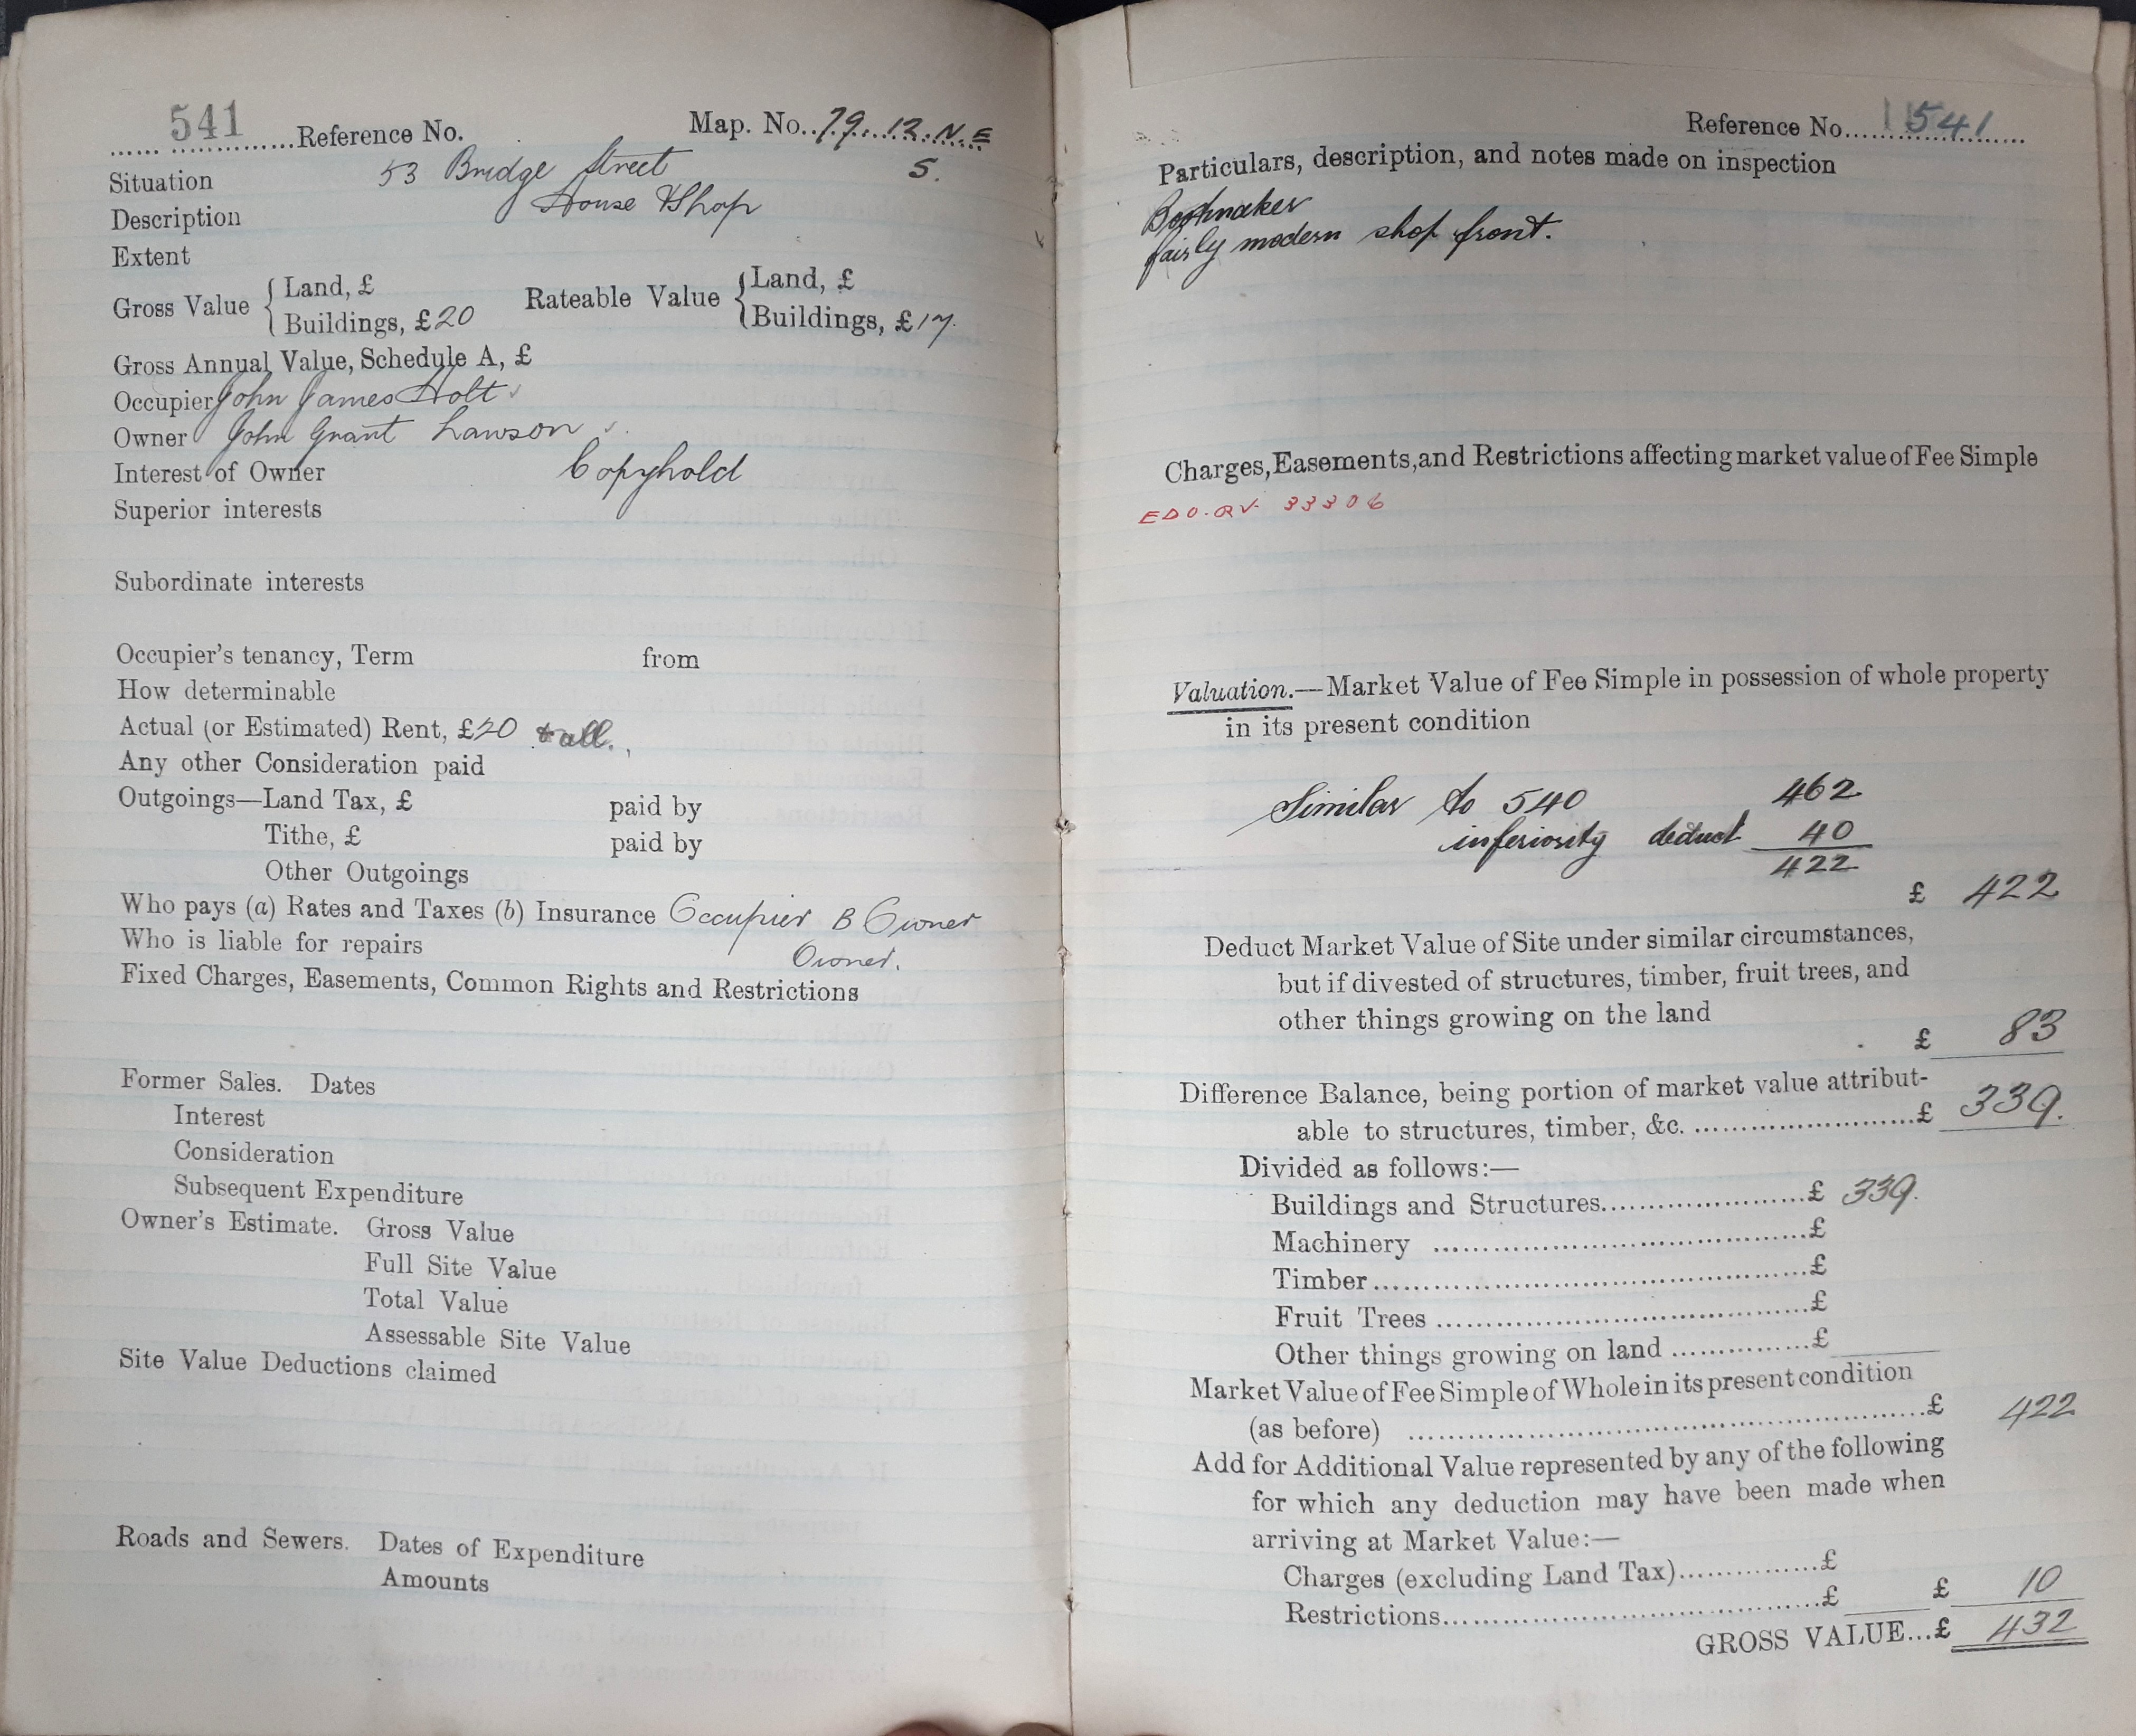 541 ......Reference No. Map. No. 79.12.N.E
S.
Situation 53 Bridge Street
Description House & Shop
Extent
Gross Value { Land, £ Rateable Value { Land, £
Buildings, £20 Buildings, £17.
Gross Annual Value, Schedule A, £
Occupier John James Holt
Owner John Grant Lawson
Interest of Owner Copyhold
Superior interests
Subordinate interests
Occupier's tenancy, Term from
How determinable
Actual (or Estimated) Rent, £20 & all.
Any other Consideration paid
Outgoings—Land Tax, £ paid by
Tithe, £ paid by
Other Outgoings
Who pays (a) Rates and Taxes (b) Insurance Occupier B Owner
Who is liable for repairs Owner.
Fixed Charges, Easements, Common Rights and Restrictions
Former Sales. Dates
Interest
Consideration
Subsequent Expenditure
Owner's Estimate. Gross Value
Full Site Value
Total Value
Assessable Site Value
Site Value Deductions claimed
Roads and Sewers. Dates of Expenditure
Amounts
Reference No. 541
Particulars, description, and notes made on inspection
Bootmaker
fairly modern shop front.
Charges, Easements, and Restrictions affecting market value of Fee Simple
33306
Valuation.—Market Value of Fee Simple in possession of whole property
in its present condition
Similar to 540 462
inferiority deduct 40
422
£ 422
Deduct Market Value of Site under similar circumstances,
but if divested of structures, timber, fruit trees, and
other things growing on the land
£ 83
Difference Balance, being portion of market value attribut-
able to structures, timber, &c. ......£ 339.
Divided as follows:—
Buildings and Structures......£ 339.
Machinery ......£
Timber......£
Fruit Trees ......£
Other things growing on land ......£
Market Value of Fee Simple of Whole in its present condition
(as before) ......£ 422
Add for Additional Value represented by any of the following
for which any deduction may have been made when
arriving at Market Value:—
Charges (excluding Land Tax)......£
Restrictions......£ £ 10
GROSS VALUE...£ 432